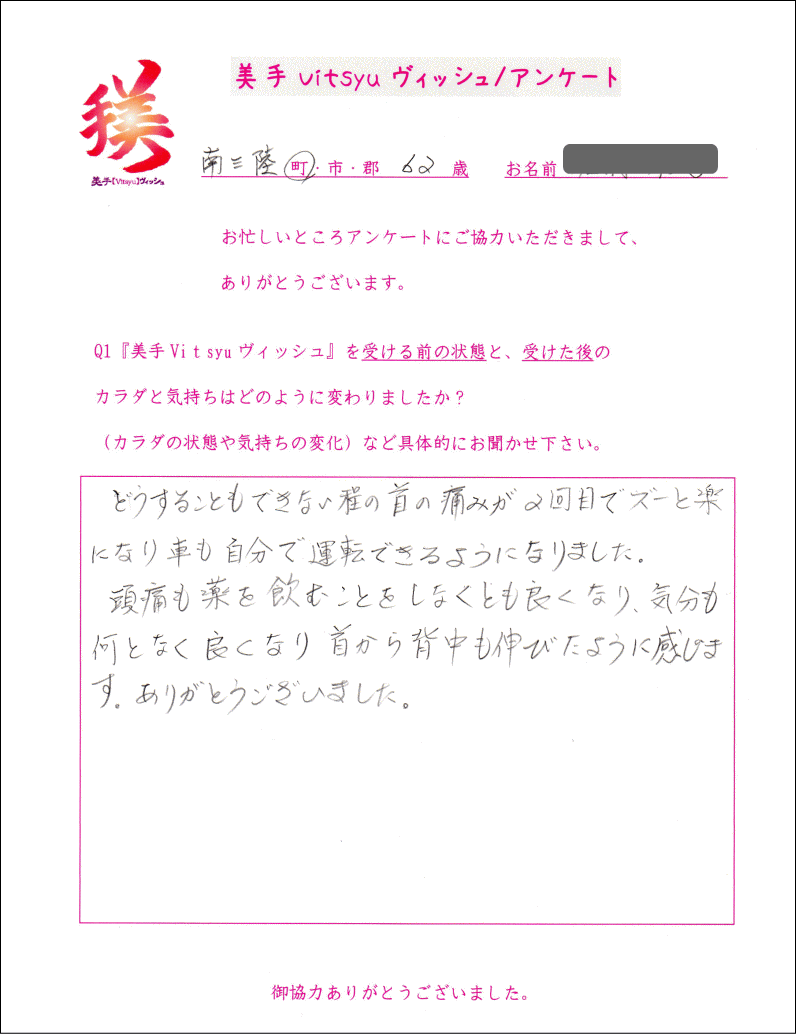 美手 vitsyu ヴィッシュ/アンケート
美手【Vitsyu】ヴィッシュ
南三陸 町・市・郡 62 歳 お名前
お忙しいところアンケートにご協力いただきまして、
ありがとうございます。
Q1『美手Vitsyuヴィッシュ』を受ける前の状態と、受けた後の
カラダと気持ちはどのように変わりましたか？
（カラダの状態や気持ちの変化）など具体的にお聞かせ下さい。
どうすることもできない程の首の痛みが2回目でズーと楽
になり車も自分で運転できるようになりました。
頭痛も薬を飲むことをしなくとも良くなり、気分も
何となく良くなり首から背中も伸びたように感じま
す。ありがとうございました。
御協力ありがとうございました。